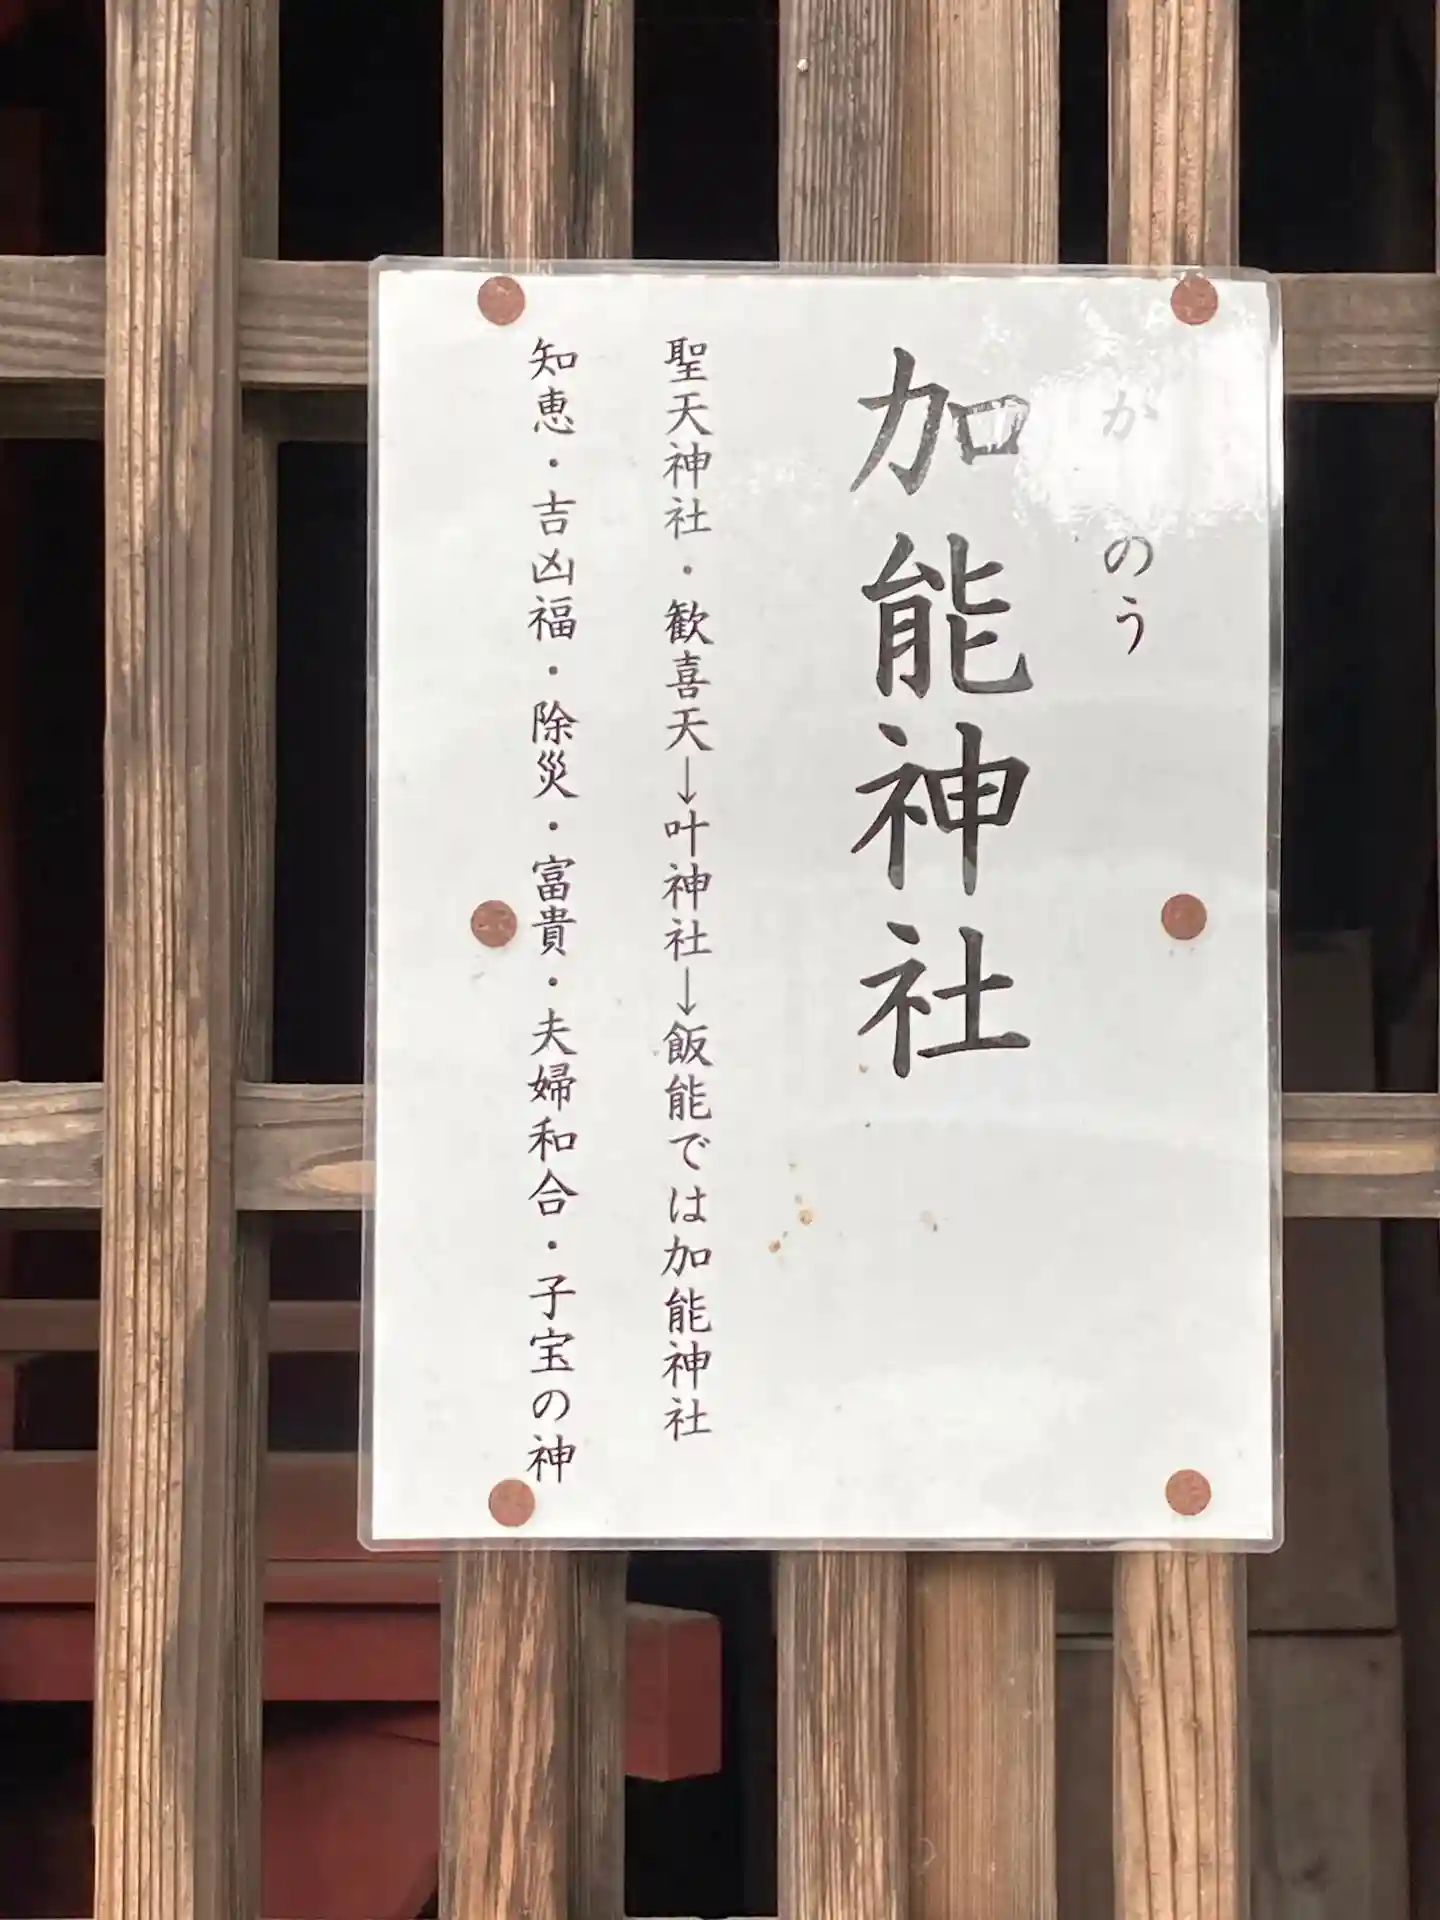 かのう
加能神社
聖天神社・歓喜天→叶神社→飯能では加能神社
知恵・吉凶福・除災・富貴・夫婦和合・子宝の神